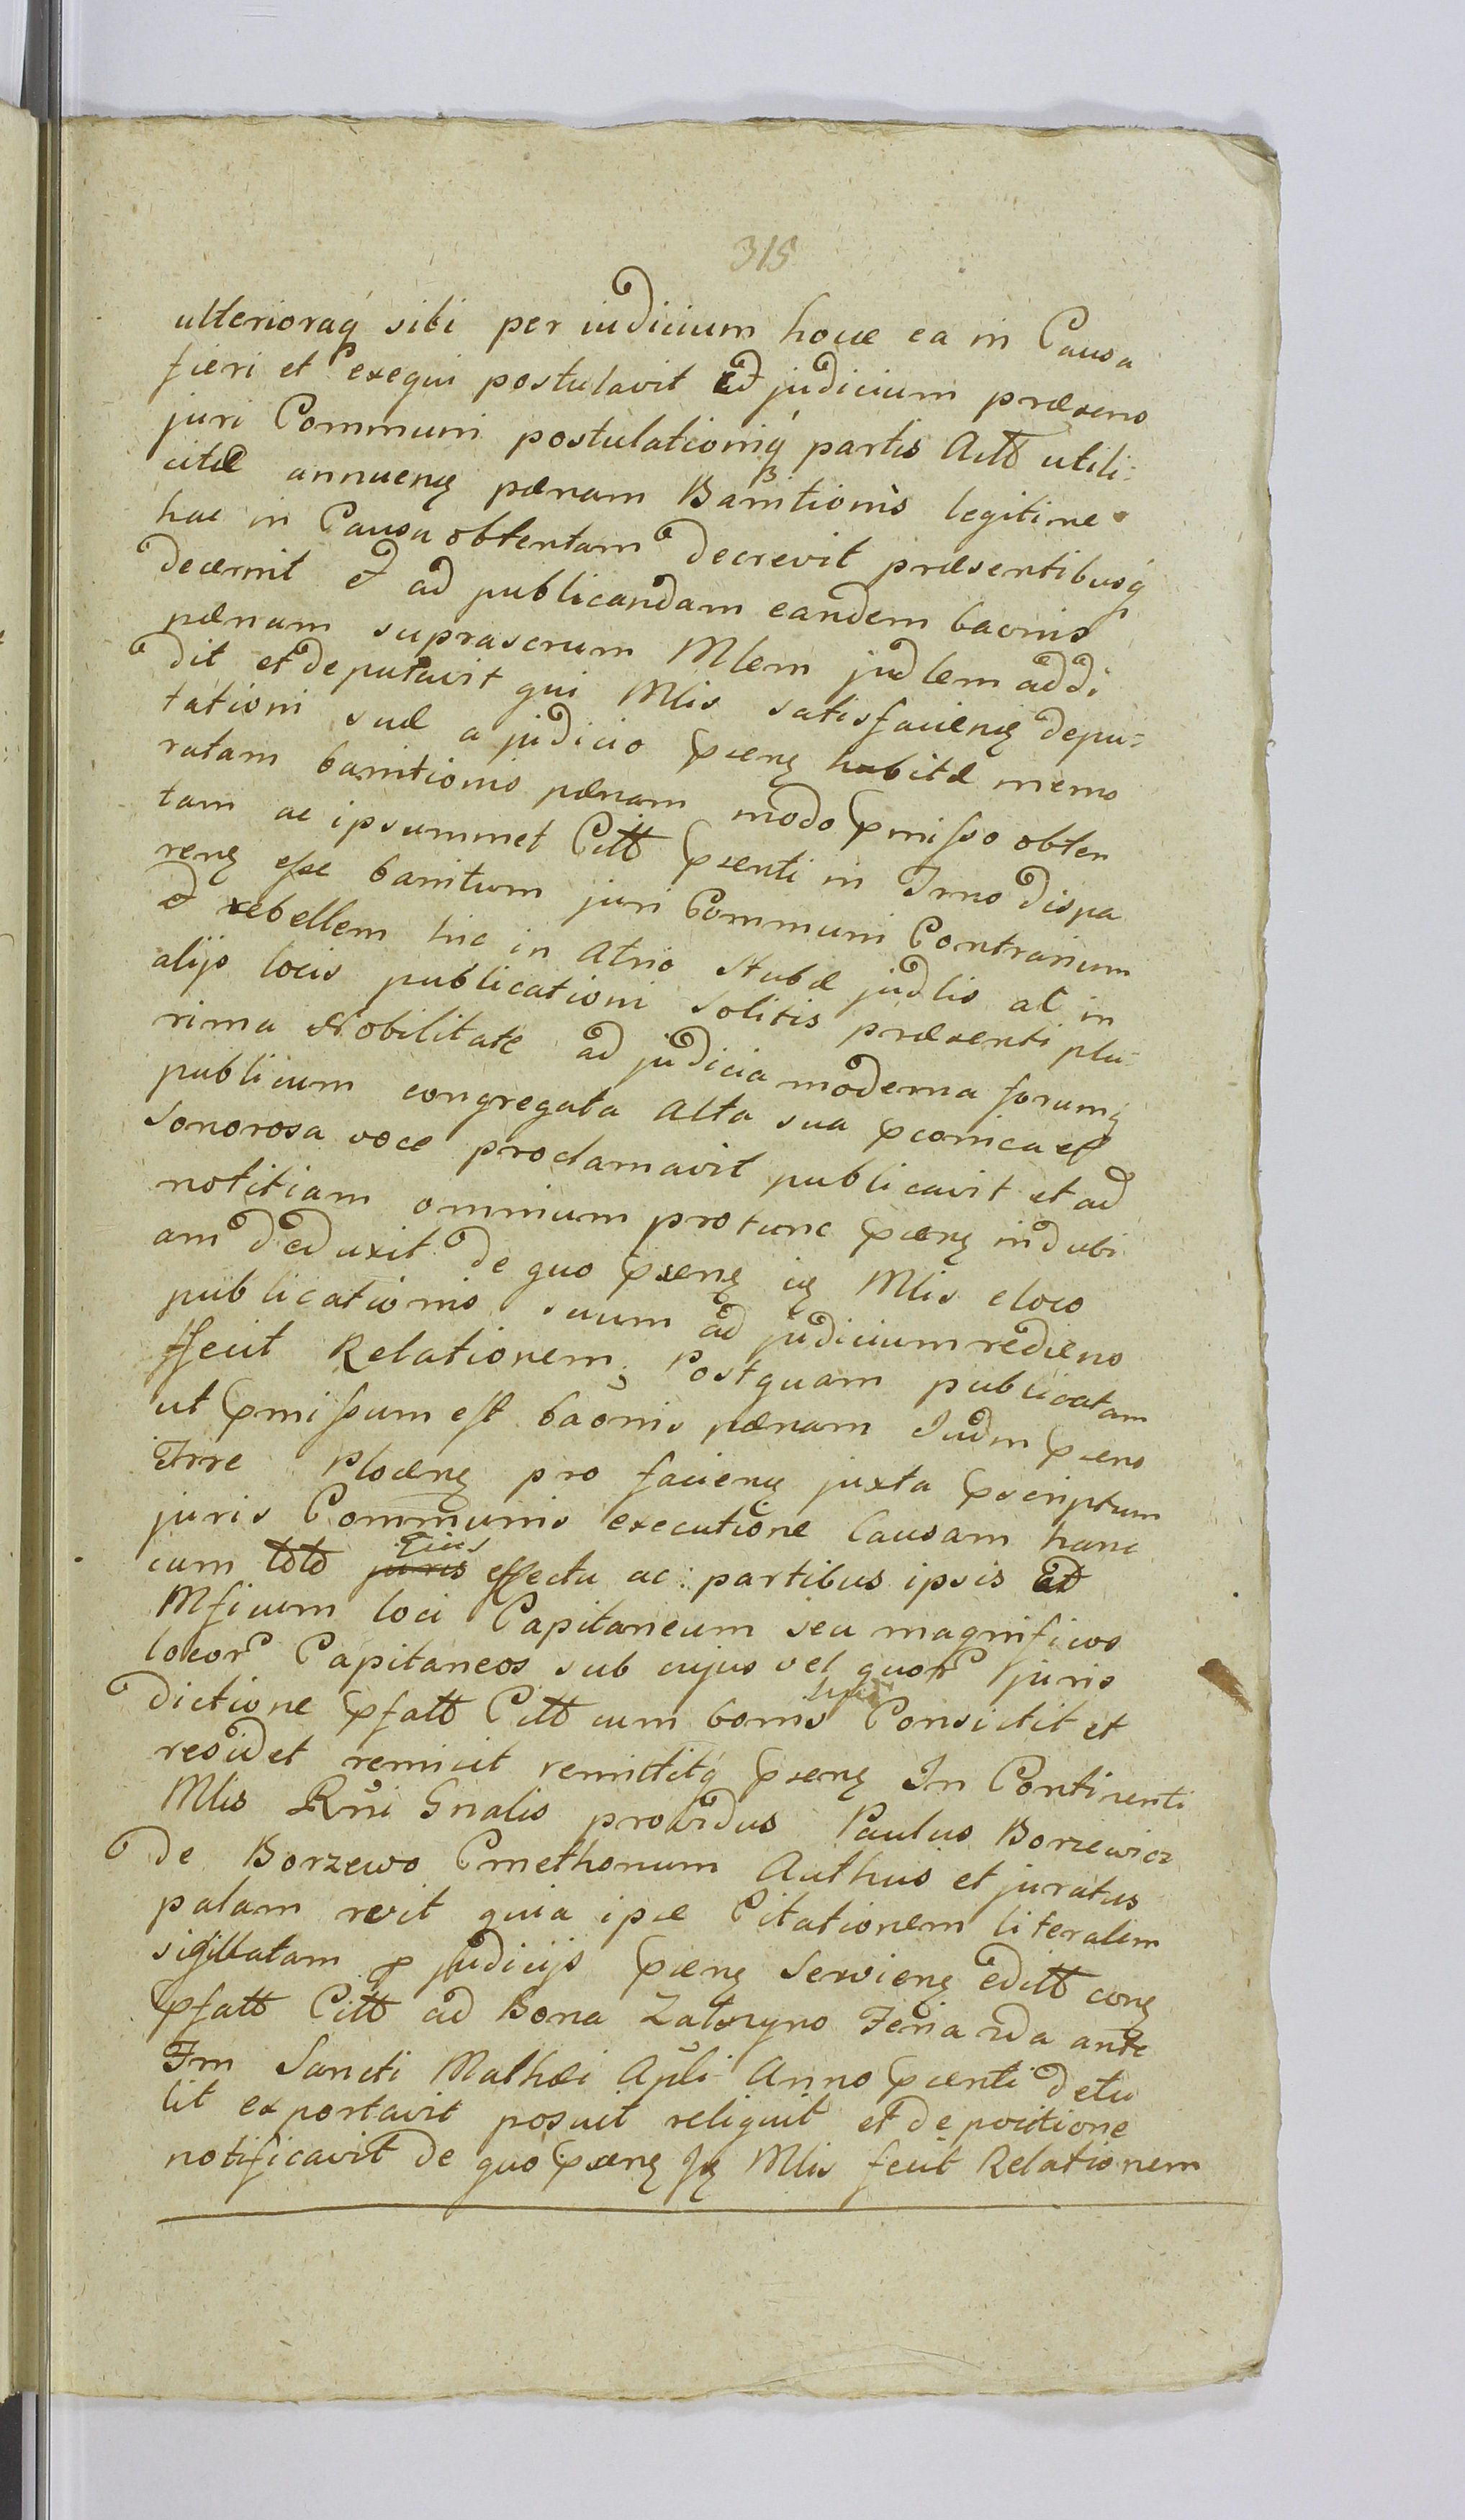 315
ulterioraq́ sibi per iudicium hocce ea in Causa
fieri et exequi postulavit Et judicium præsens
juri Communi postulationiq́ partis Actt utili:
citæ annuenς pænam Banitionis legitime
hac in Causa obtentam decrevit præsentibusq́
decernit et ad publicandam eandem baonis
pænam suprascrum Mlem judlem addi
dit et deputavit qui Mlis satisfacienς depu=
tationi suæ a judicio pœnς habitæ memo
ratam banitionis pænam modo pmisso obten
tam ac ipsummet Citt psenti in Trno dispa
renς esse banitum juri Communi Contrarium
et rebellem hic in Atrio stubæ judlis ac in
alijs locis publicationi solitis præsenti plu=
rima Nobilitate ad judicia moderna forumq
publicum congregata Alta sua pconica et
sonorosa voce proclamavit publicavit et ad
notitiam omnium protunc psenς indubi
am deduxit de quo psenς iς Mlis eloco
publicationis suum ad judicium rediens
ffecit Relationem; Postquam publicatam
ut pmissum est baonis pænam Judm psens
Trre Plocenς pro facienς juxta pscriptum
juris Communis executione Causam hanc
cum toto juris Ejus effectu ac: partibus ipsis Ad
Mficum loci Capitaneum seu magnificos
locor Capitaneos sub cujus vel quor juris
dictione pfatt Citt cum bonis suis Consistit et
residet remisit remittitq́ psenς In Continenti
Mlis Rni Gnalis providus Paulus Borzewicz
de Borzewo Cmethonum Authus et juratus
palam rcvit quia ipse Citationem literalem
sigillatam p judicijs psenς Servienς editt conς
pfatt Citt ad Bona Zalszyno Feria 2da ante
Fm Sancti Mathæi Apli Anno psenti detu
lit exportavit posuit reliquit et de positione
notificavit de quo psenς Iς Mlis fecit Relationem